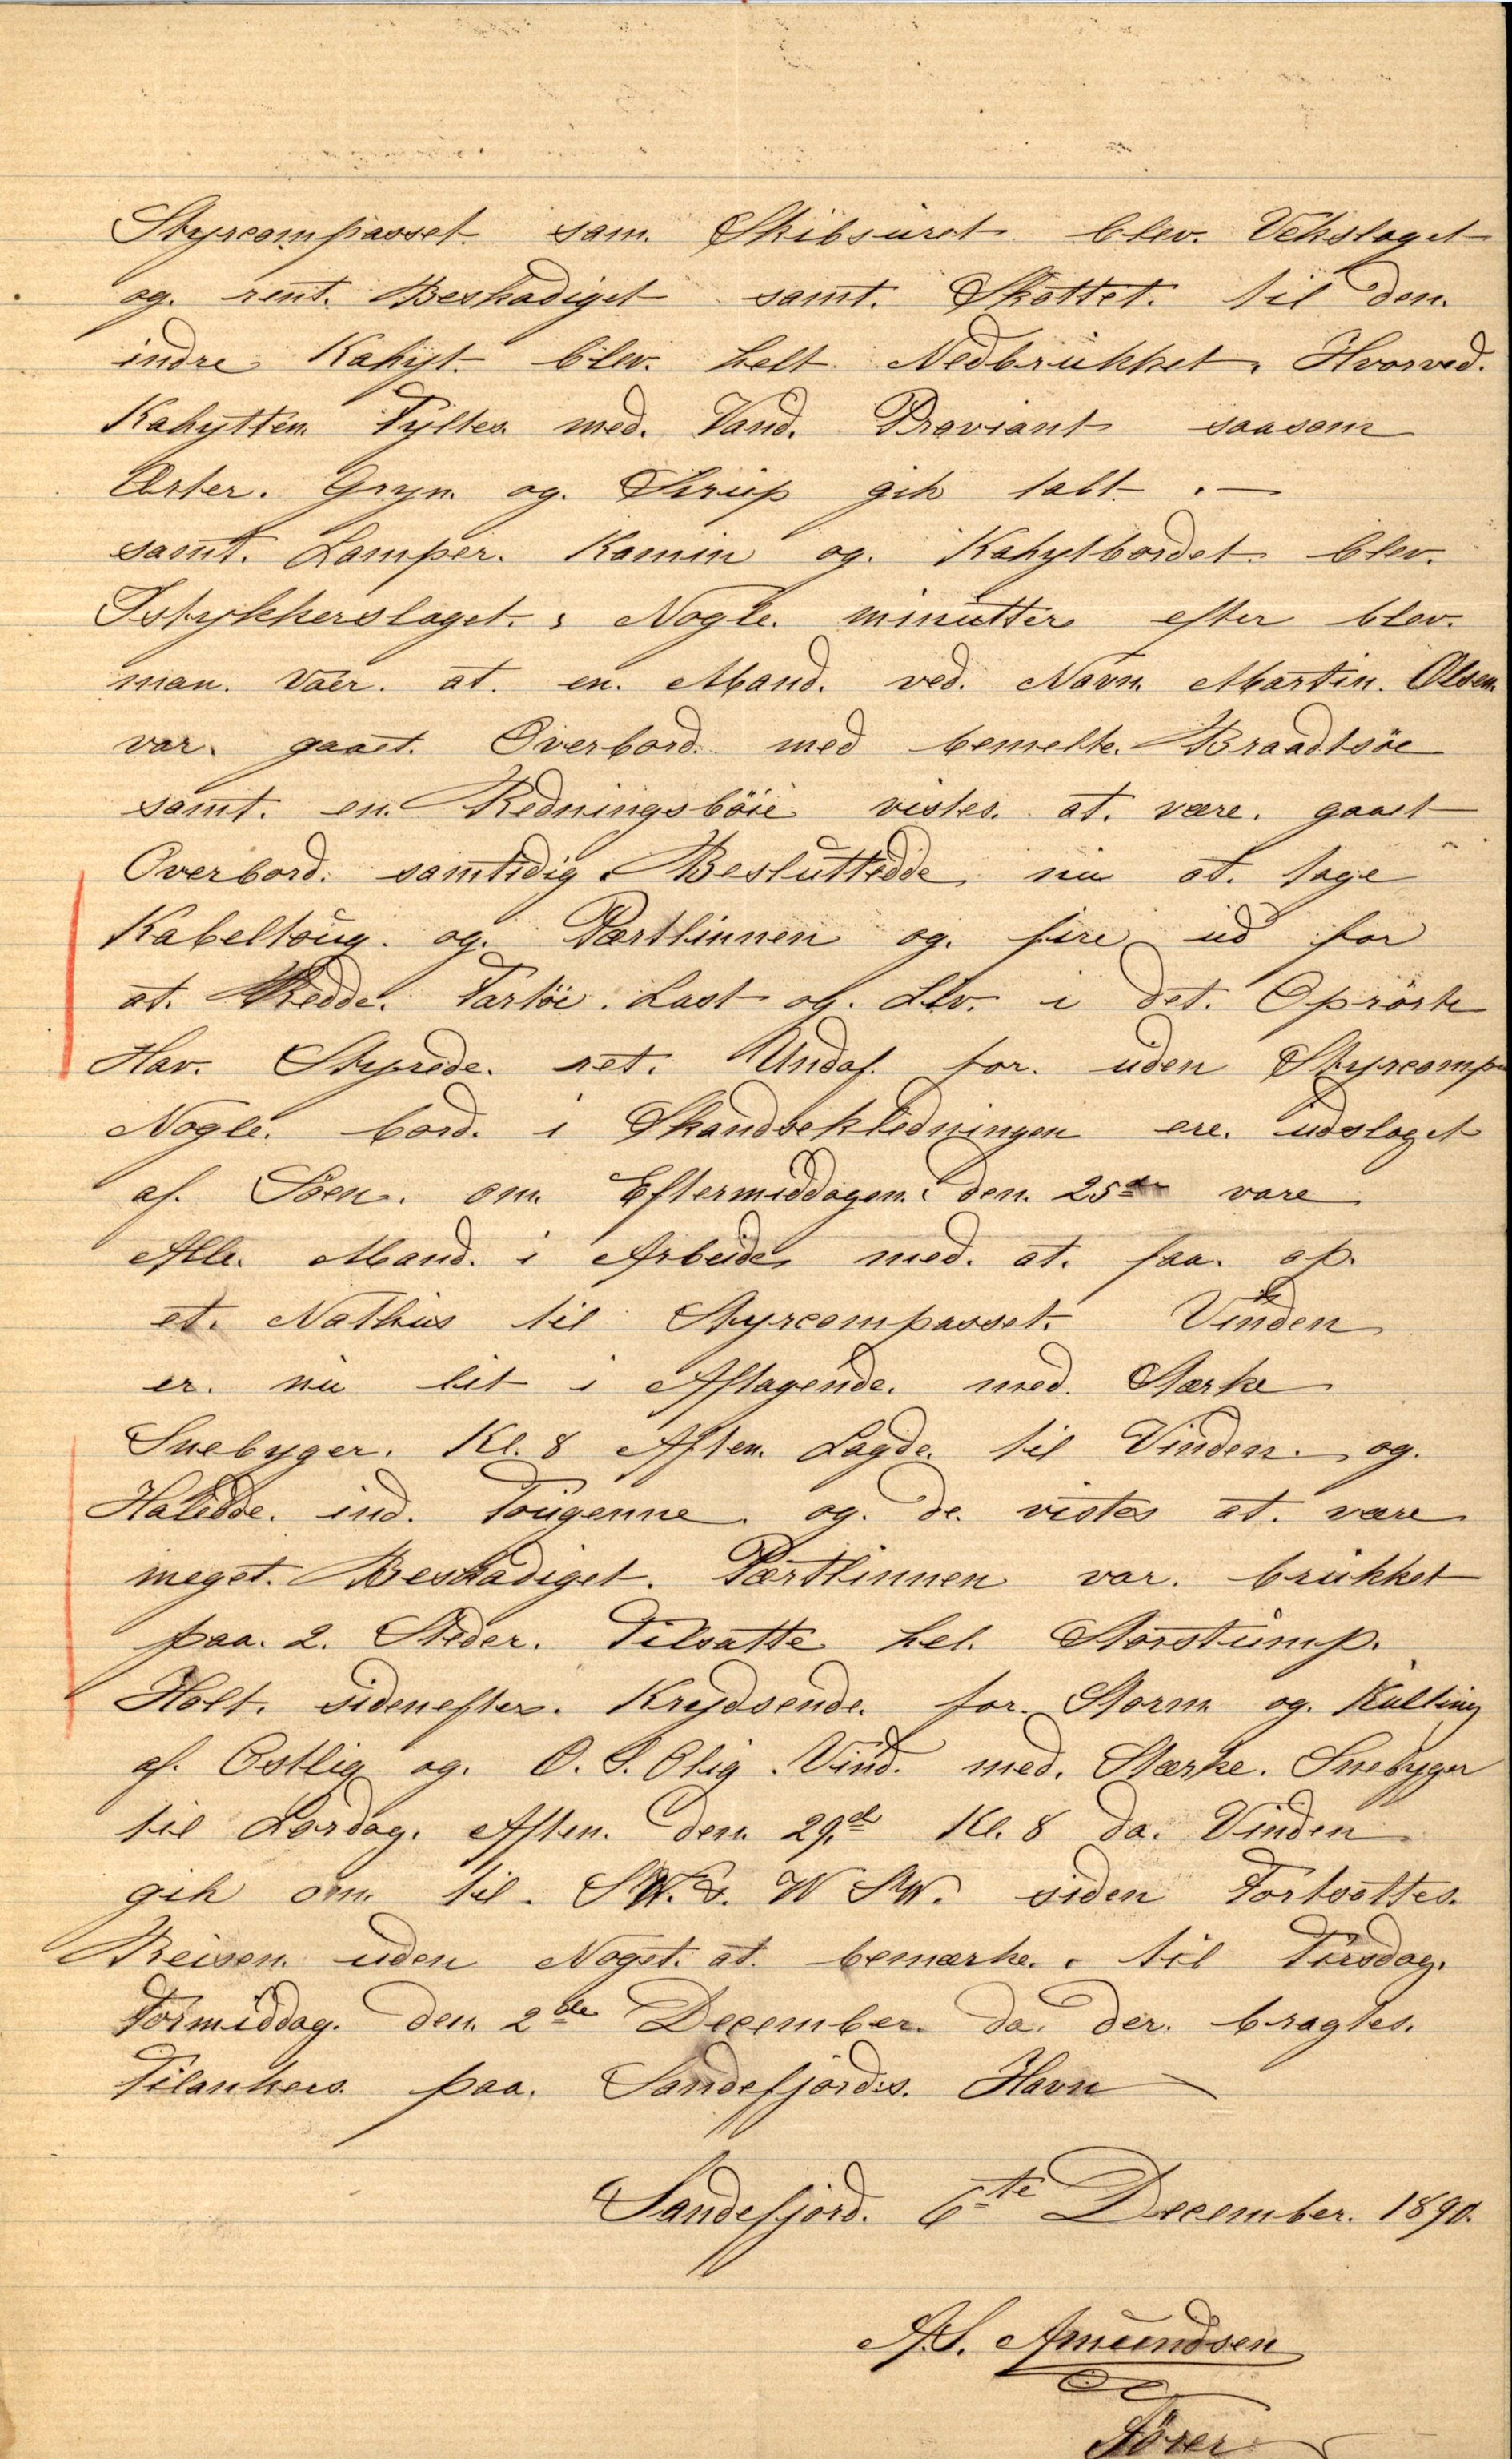 Styrcompasset. sam. Skibsuret. blev. Vekslaget
og. rent. Beskadiget samt. Skottet. til den.
indre Kahyt. blev. helt Nedbrukket. Hvorved.
Kahytten Fyltes med. Vand. Proviant saasom
Erter. Gryn og. Sirup gik tabt. —
samt. Lamper. Kamin og. Kahytbordet. blev.
Istykkerslaget. Nogle. minutter efter blev.
man. Vaer. at. en. Mand. ved. Navn. Martin. Olsen.
var. gaaet. Overbord. med bemelte. Braadtsöe
samt. en. Redningsböie vistes. at. være. gaaet
Overbord. samtidig. Besluttedde nu at. tage
Kabeltoug. og. Pærtlinnen og. fire ud for
at. Redde. Fartöi. Last og. Liv. i det. Oprörte
Hav. Styrede. ret. Undaf. for. uden Styrcomp
Nogle. bord. i Skandsekledningen ere. udslaget
af. Söen. om. Eftermiddagen. den. 25de vare
Alle. Mand. i Arbeide med. at. faa. op.
et. Nathus til Styrcompasset. Vinden
er. nu lit i Aftagende. med. Stærke
Snebyger. Kl. 8 Aften. Lagde. til Vinden. og.
Haledde. ind. Tougenne. og. de. vistes at. være
meget. Beskadiget. Pærtlinnen var. brukket
paa. 2. Steder. Tilsatte hel. Storstump.
Holt. sidenefter. Krydsende. for. Storm og. Kulling
af. Ostlig og. O. S. Olig. Vind. med. Stærke. Snebyger
til Lördag. Aften. den. 29.de Kl. 8 da. Vinden
gik om. til. SW. W SW. siden Fortsattes.
Reisen. uden Noget. at. bemærke. til Tirsdag.
Formiddag. den. 2den December. da. der. bragtes.
Tilankers paa. Sandefjords. Havn
Sandefjord. 6te December. 1890.
A. S. Amundsen
Förer